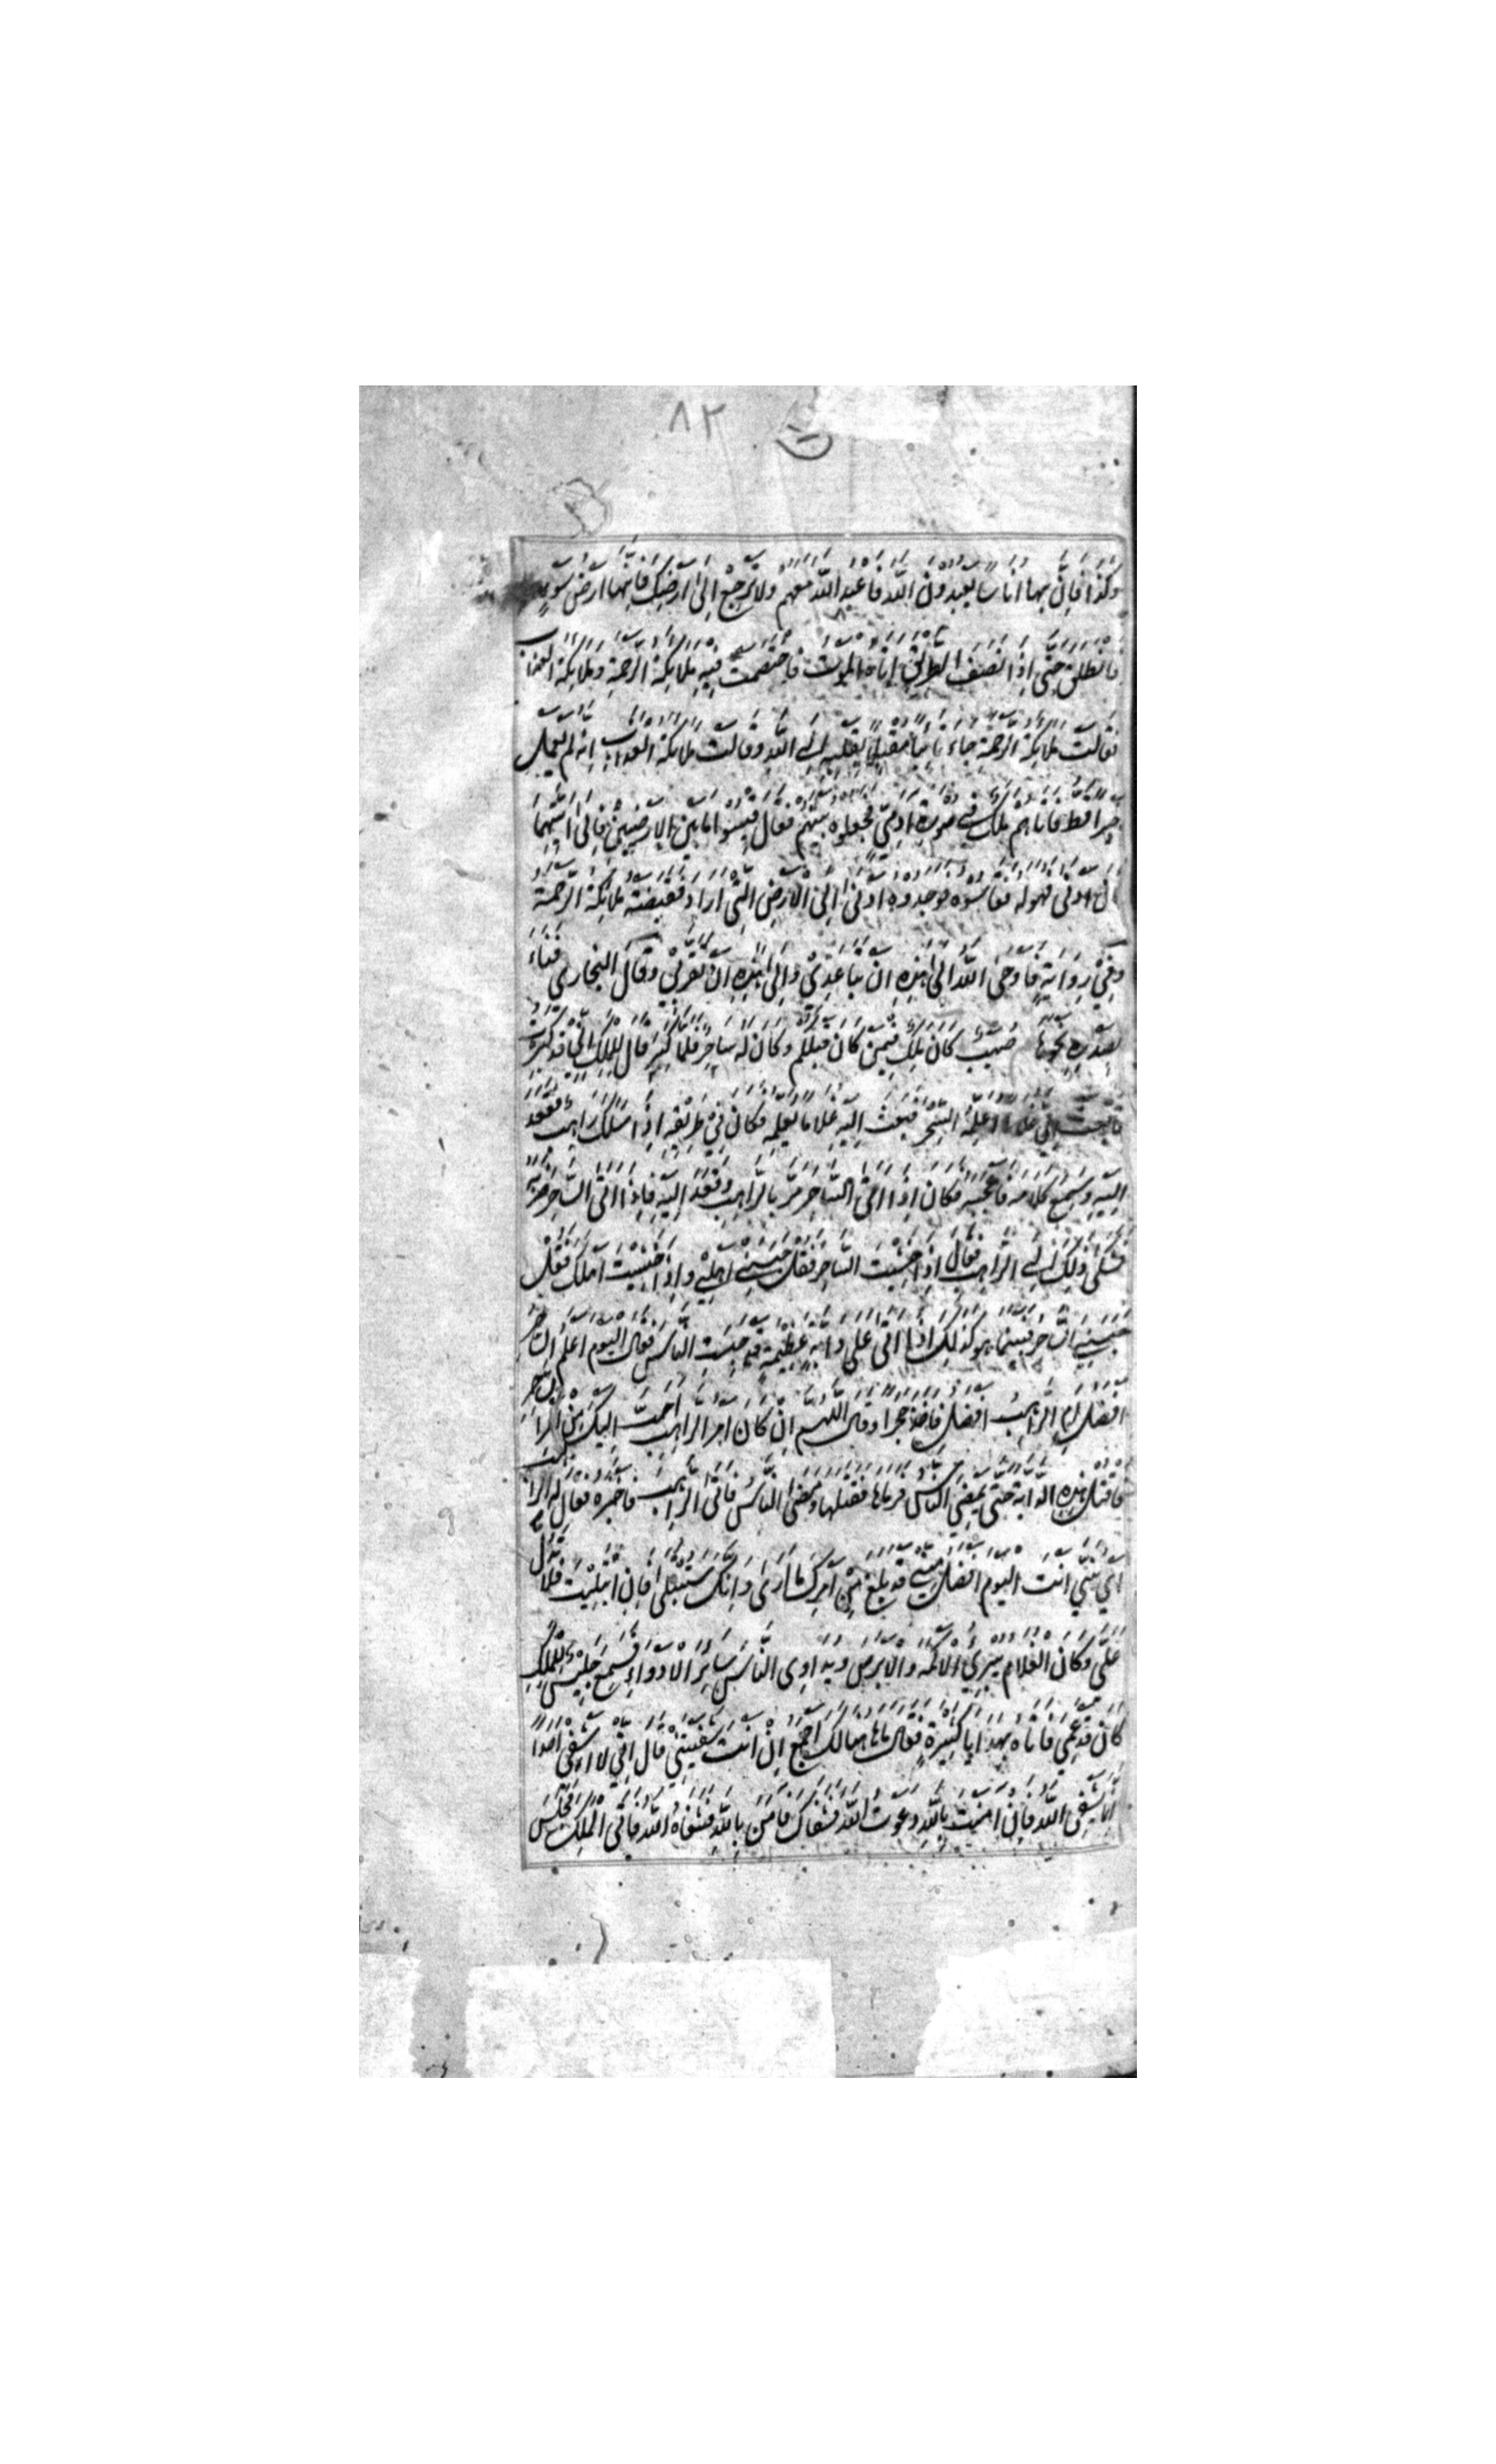 ٨٢
وكذا فان بها اناسا يعبدون الله فاعبد الله معهم ولا ترجع الى ارضك فانها ارض سوء
فانطلق حتى اذا انصف الطريق اتاه الموت فاختصمت فيه ملائكة الرحمة وملائكة العذاب
فقالت ملائكة الرحمة جاء تائبا مقبلا بقلبه الى الله وقالت ملائكة العذاب انه لم يعمل
خيرا قط فاتاهم ملك في صورة ادمي فجعلوه بينهم فقال قيسوا ما بين الارضين فالى ايتهما
كان ادنى فهو له فقاسوه فوجدوه ادنى الى الارض التي اراد فقبضته ملائكة الرحمة
وفي رواية فاوحى الله الى هذه ان تباعدي والى هذه ان تقربي وقال البخاري فناء
بصدره نحوها صهيب كان ملك فيمن كان قبلكم وكان له ساحر فلما كبر قال للملك اني قد كبرت
فابعث الي غلاما اعلمه السحر فبعث اليه غلاما يعلمه فكان في طريقه اذا سلك راهب فقعد
اليه وسمع كلامه فاعجبه فكان اذا اتى الساحر مر بالراهب وقعد اليه فاذا اتى الساحر ضربه
فشكى ذلك الى الراهب فقال اذا خشيت الساحر فقل حبسني اهلي واذا خشيت اهلك فقل
حبسني الساحر فبينما هو كذلك اذ اتى على دابة عظيمة قد حبست الناس فقال اليوم اعلم الساحر
افضل ام الراهب افضل فاخذ حجرا وقال اللهم ان كان امر الراهب احب اليك من امر الساحر
فاقتل هذه الدابة حتى يمضي الناس فرماها فقتلها ومضى الناس فاتى الراهب فاخبره فقال له الراهب
اي بني انت اليوم افضل مني قد بلغ من امرك ما ارى وانك ستبتلى فان ابتليت فلا تدل
علي وكان الغلام يبرئ الاكمه والابرص ويداوى الناس سائر الادواء فسمع جليس للملك
كان قد عمي فاتاه بهدايا كثيرة فقال ما هاهنا لك اجمع ان انت شفيتني قال اني لا اشفي احدا
انما يشفي الله فان امنت بالله دعوت الله فشفاك فامن بالله فشفاه الله فاتى الملك فجلس